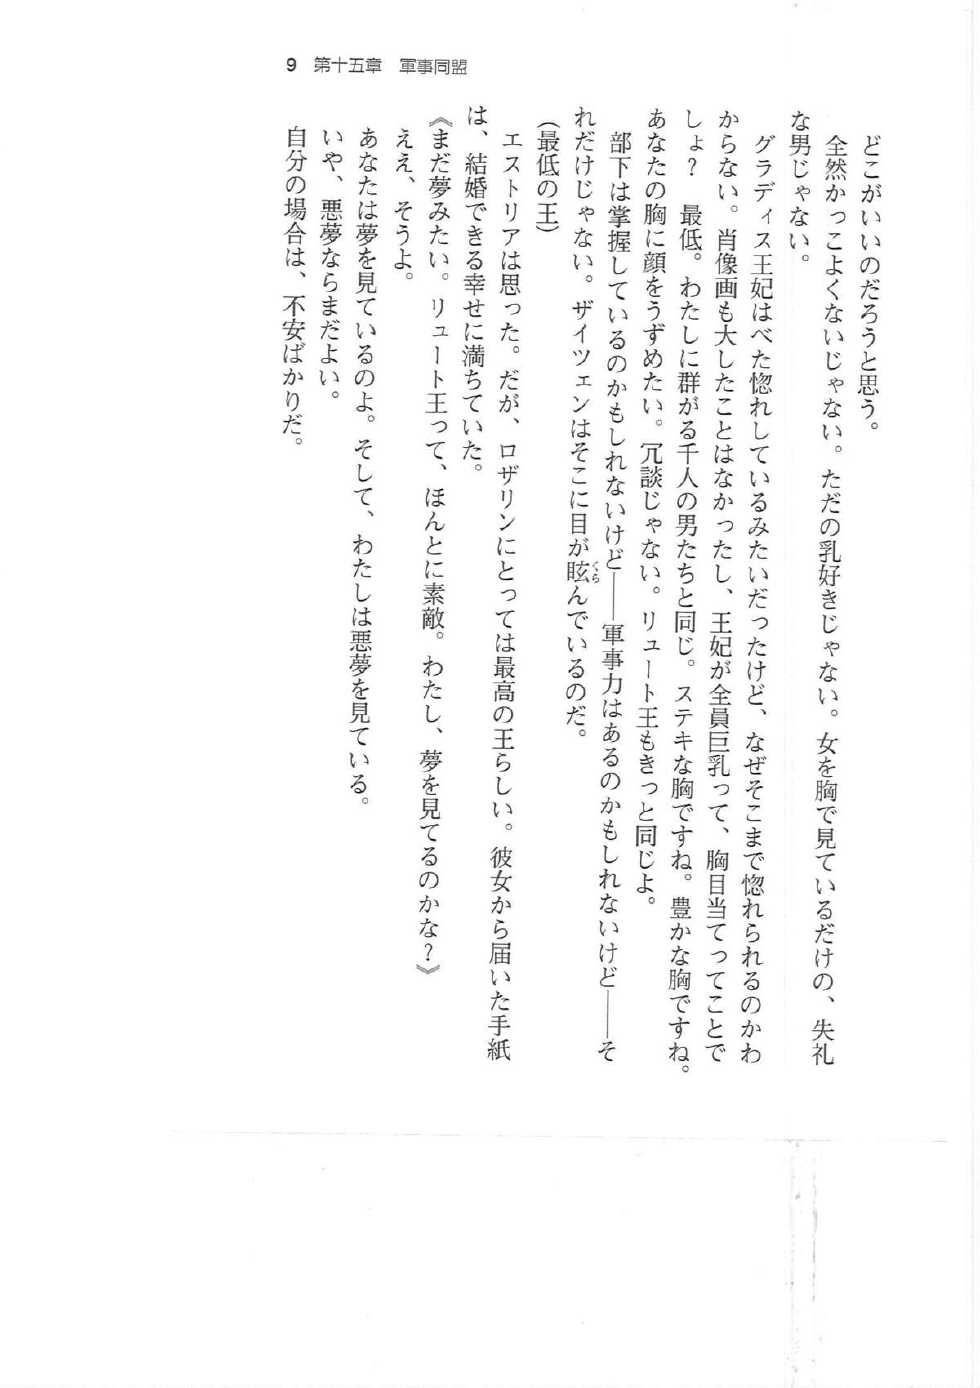 9 第十五章 軍事同盟
どこがいいのだろうと思う。
全然かっこよくないじゃない。ただの乳好きじゃない。女を胸で見ているだけの、失礼
な男じゃない。
グラディス王妃はべた惚れしているみたいだったけど、なぜそこまで惚れられるのかわ
からない。肖像画も大したことはなかったし、王妃が全員巨乳って、胸目当てってことで
しょ？ 最低。わたしに群がる千人の男たちと同じ。ステキな胸ですね。豊かな胸ですね。
あなたの胸に顔をうずめたい。冗談じゃない。リュート王もきっと同じよ。
部下は掌握しているのかもしれないけど――軍事力はあるのかもしれないけど――そ
れだけじゃない。ザイツェンはそこに目が眩んでいるのだ。
くら
（最低の王）
エストリアは思った。だが、ロザリンにとっては最高の王らしい。彼女から届いた手紙
は、結婚できる幸せに満ちていた。
《まだ夢みたい。リュート王って、ほんとに素敵。わたし、夢を見てるのかな？》
ええ、そうよ。
あなたは夢を見ているのよ。そして、わたしは悪夢を見ている。
いや、悪夢ならまだよい。
自分の場合は、不安ばかりだ。